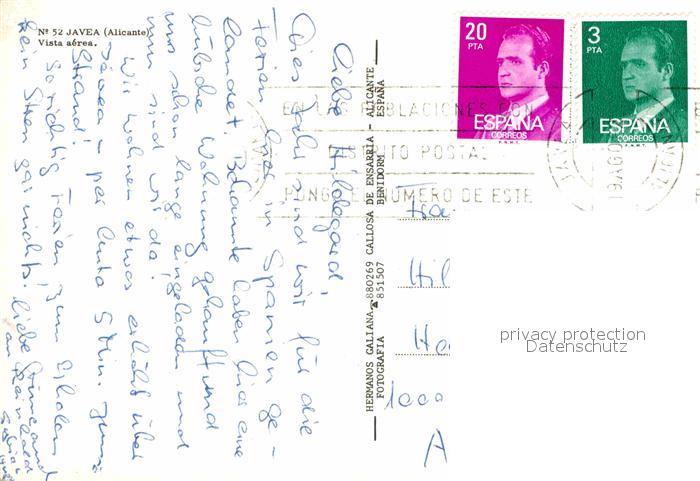 Nº 52 JAVEA (Alicante)
Vista aérea.
Liebe Hildegard,
Dies Jahr sind wir für die
Ferien hier in Spanien ge-
landet. Bekannte haben hier eine
hübsche Wohnung gekauft und
uns schon lange eingeladen und
nun sind wir da.
Wir wohnen etwas erhöht über
Javea - per Auto 5 Min. zum
Strand.
So richtig Ferien, zum Erholen
kein Stress gar nichts. Liebe
an
HERMANOS GALIANA - 880269 CALLOSA DE ENSARRIA - ALICANTE
FOTOGRAFIA 851507 BENIDORM ESPAÑA
20
PTA
ESPAÑA
CORREOS
F.N.M.T.
3
PTA
ESPAÑA
CORREOS
F.N.M.T.
EN LAS POBLACIONES CON
DISTRITO POSTAL
PONGA EL NUMERO DE ESTE
19 AGO
Fra
Hil
Ha
1000
A
privacy protection
Datenschutz